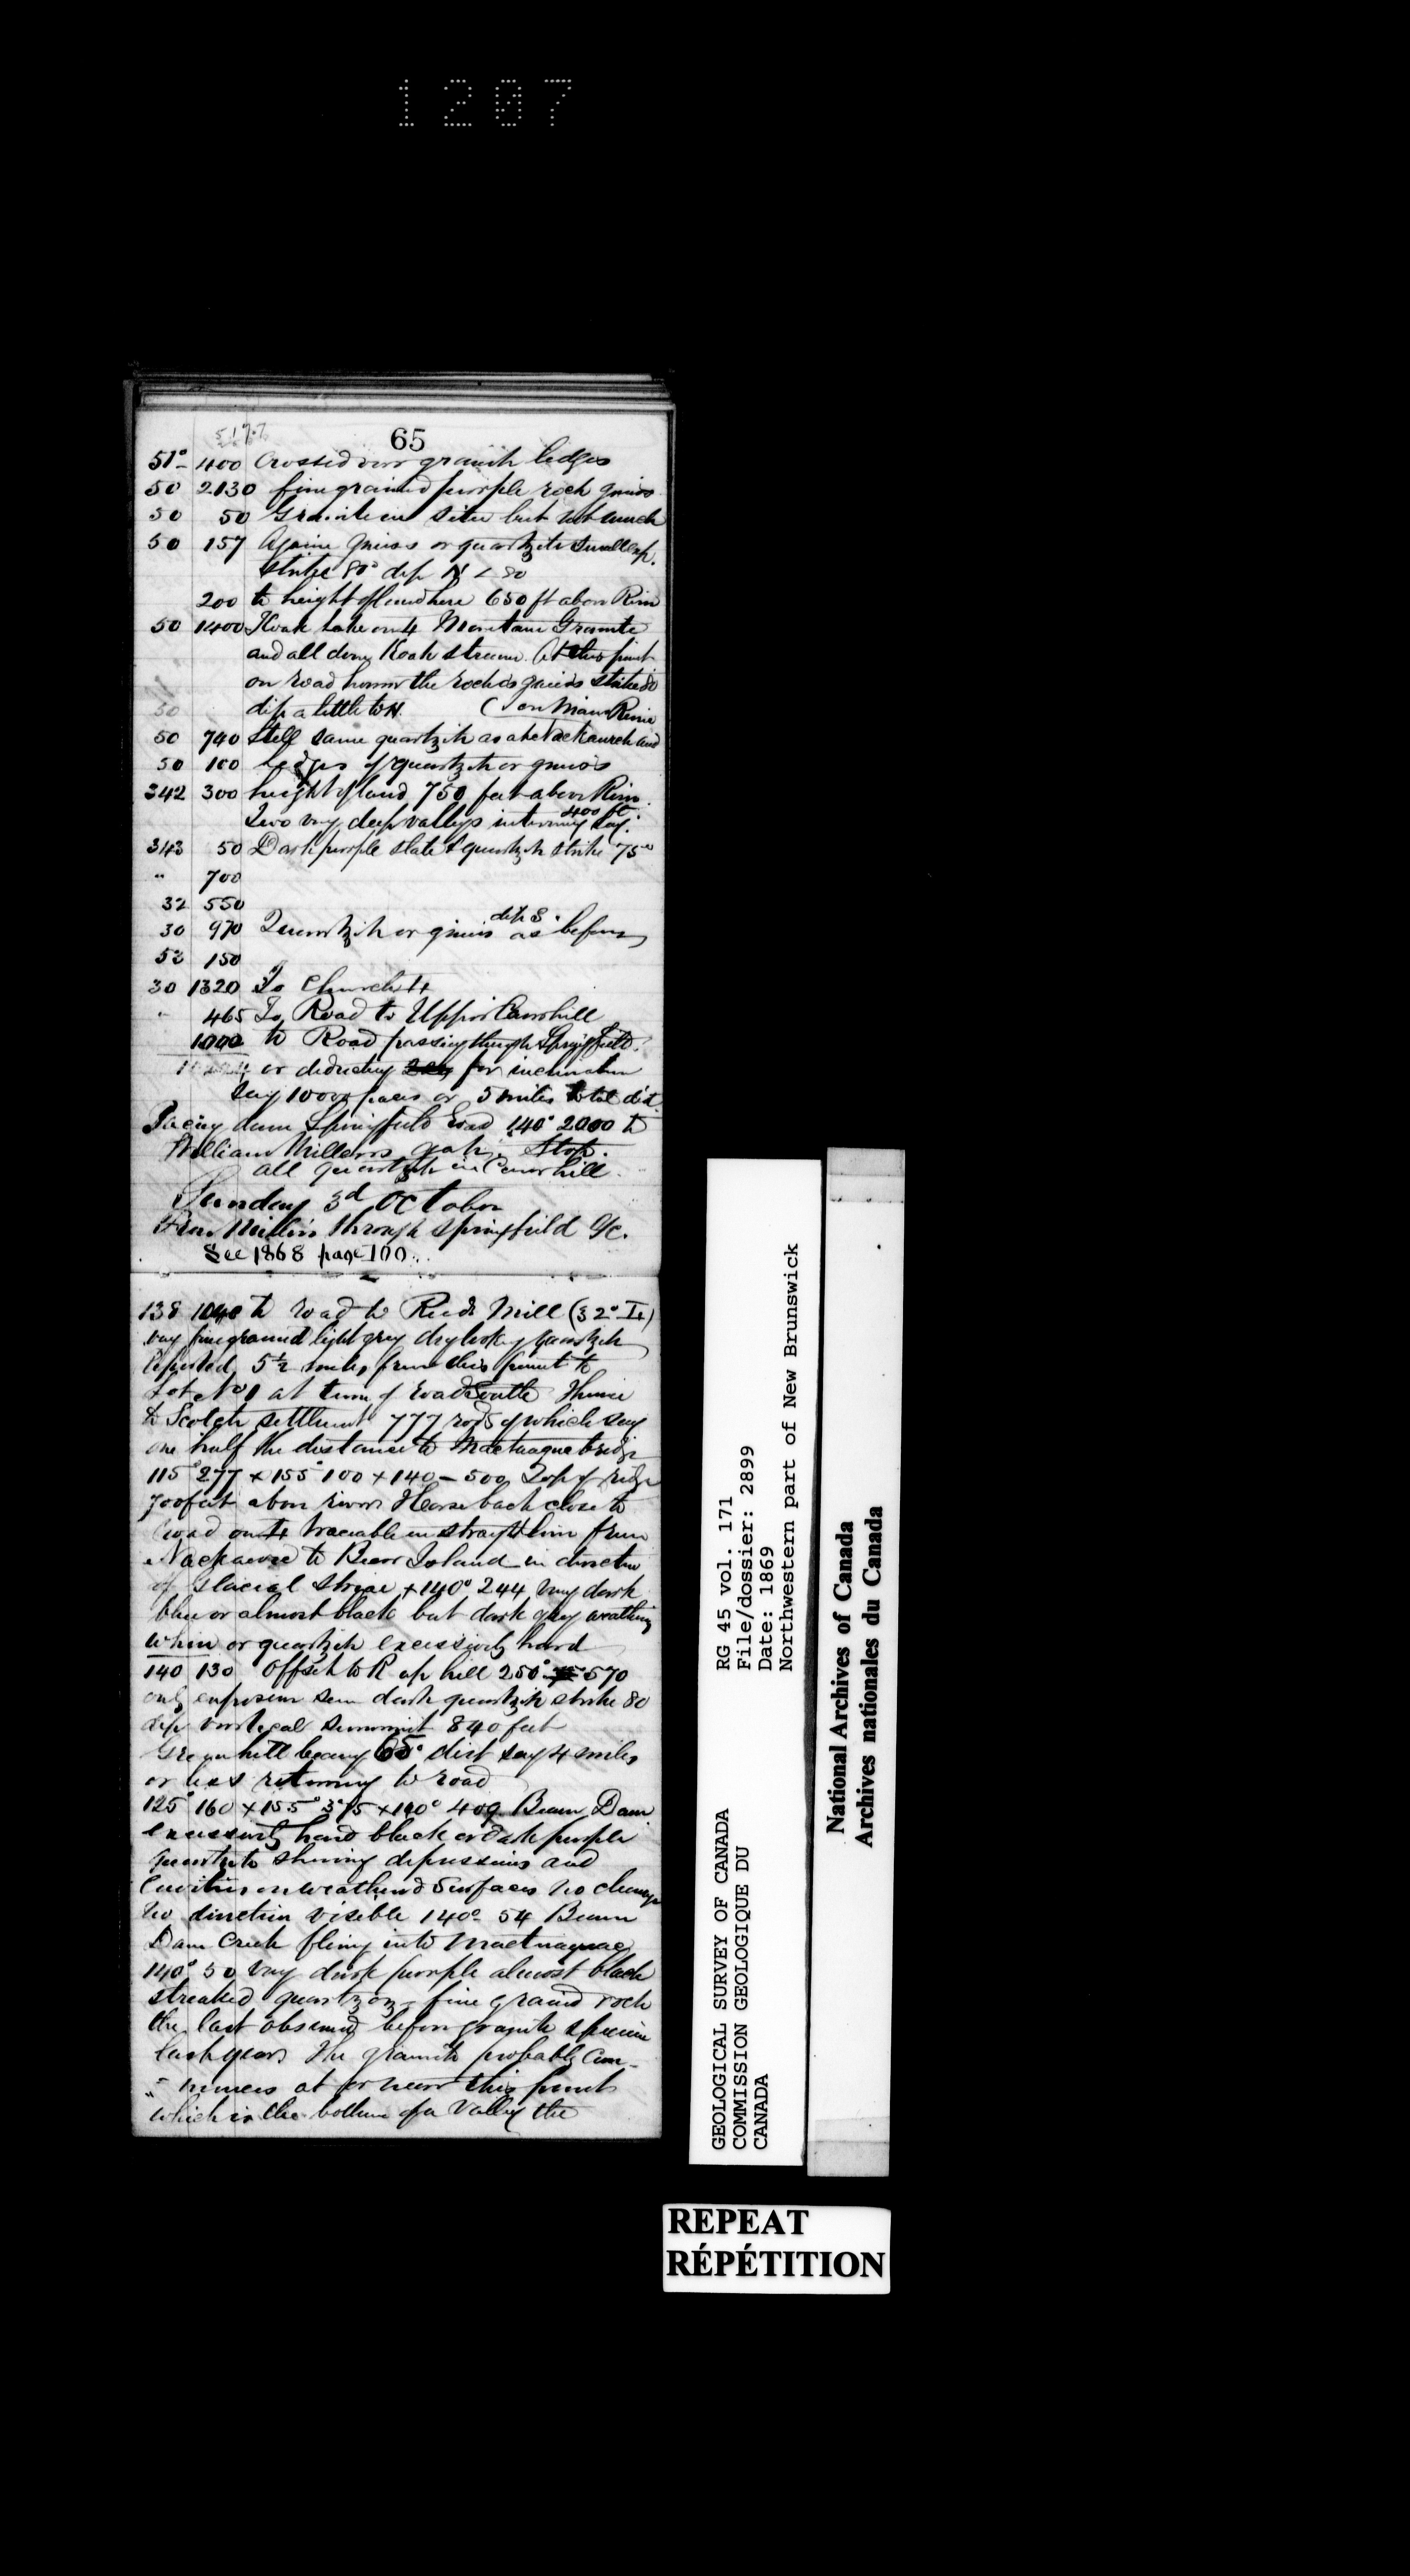 1207
5177
65
51° 400 Crossed over granite ledges
50 2130 fine grained purple rock gneiss
50 50 Granite in situ but not much
50 157 Again gneiss or quartzite small exp.
strike 80° dip N < 80
200 to height of land here 650 ft above River
50 1400 Koak Lake on 4 Montane Granite
and all down Koak stream. At this point
on road however the rock is gneiss strike 80
dip a little to N. (on Main River
50 740 Still same quartzite as at Nackawick and
50 100 Ledges of quartzite or gneiss
342 300 height of land 750 feet above River.
Two very deep valleys intervening say 400 ft.
343 50 Dark purple slate & quartzite strike 75°
" 700
32 550
30 970 Quartzite or gneiss dip S. as before
52 150
30 1320 To Church
" 465 To Road to Upper Caverhill
1000 to Road passing through Springfield.
or deducting for inclination
say 10000 paces or 5 miles total dist.
Pacing down Springfield Road 140° 2000 to
William Millers gate. Stop.
all quartzite in Caverhill.
Sunday 3d October
From Millers through Springfield &c.
See 1868 page 100.
138 1040 to road to Reeds Mill (32°
very fine grained light grey dry looking quartzite
Reported 5½ miles from this point to
Lot No 1 at turn of road South Thence
to Scotch settlement 777 rods of which say
one half the distance to Mactuaquc bridge
115° 277 + 155° 100 + 140 – 500 Top of ridge
700 feet above river Horseback close to
road on traceable in straight line from
Nackawick to Bear Island in direction
of Glacial Striae + 140° 244 Very dark
blue or almost black but dark grey weathering
whin or quartzite excessively hard
140 130 Offset to R up hill 250° 570
only exposure seen dark quartzite strike 80
dip vertical summit 840 feet
Green hill bearing 65° dist say 4 miles
or less returning to road
125° 160 + 155° 375 + 140° 409 Beaver Dam
excessively hard black or dark purple
quartzite showing depressions and
Cavities on weathered surfaces no cleavage
no direction visible 140° 54 Beaver
Dam Creek flowing into Mactuaquac
140° 50 Very dark purple almost black
streaked quartzoze fine grained rock
the last observed before granite specimen
last year. The granite probably com-
" mences at or near this point
which is the bottom of a Valley the
GEOLOGICAL SURVEY OF CANADA
COMMISSION GEOLOGIQUE DU
CANADA
RG 45 vol. 171
File/dossier: 2899
Date: 1869
Northwestern part of New Brunswick
National Archives of Canada
Archives nationales du Canada
REPEAT
RÉPÉTITION